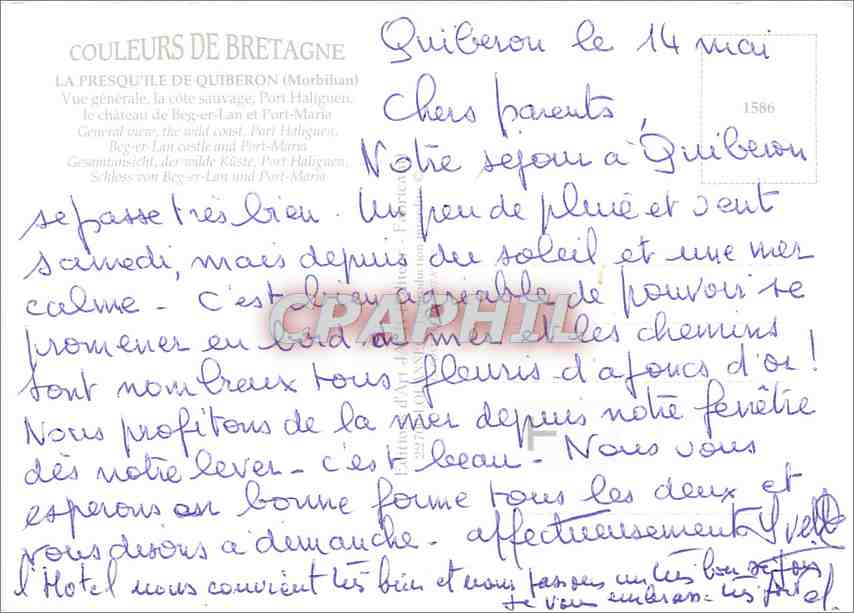 COULEURS DE BRETAGNE
LA PRESQU'ILE DE QUIBERON (Morbihan)
Vue générale, la côte sauvage, Port Haliguen,
le château de Beg-er-Lan et Port-Maria
General view, the wild coast, Port Haliguen,
Beg-er-Lan castle and Port-Maria
Gesamtansicht, der wilde Küste, Port Haliguen,
Schloss von Beg-er-Lan und Port-Maria
1586
Quiberon le 14 mai
Chers parents,
Notre séjour à Quiberon
se passe très bien. Un peu de pluie et vent
samedi, mais depuis du soleil et une mer
calme - C'est bien agréable de pouvoir se
promener en bord de mer et les chemins
sont nombreux tous fleuris d'ajoncs d'or !
Nous profitons de la mer depuis notre fenêtre
dès notre lever - c'est beau - Nous vous
esperons en bonne forme tous les deux et
vous disons à dimanche - affectueusement
l'Hotel nous convient très bien et nous passons un très bon séjour
Je vous embrasse très fort
CPAPHIL